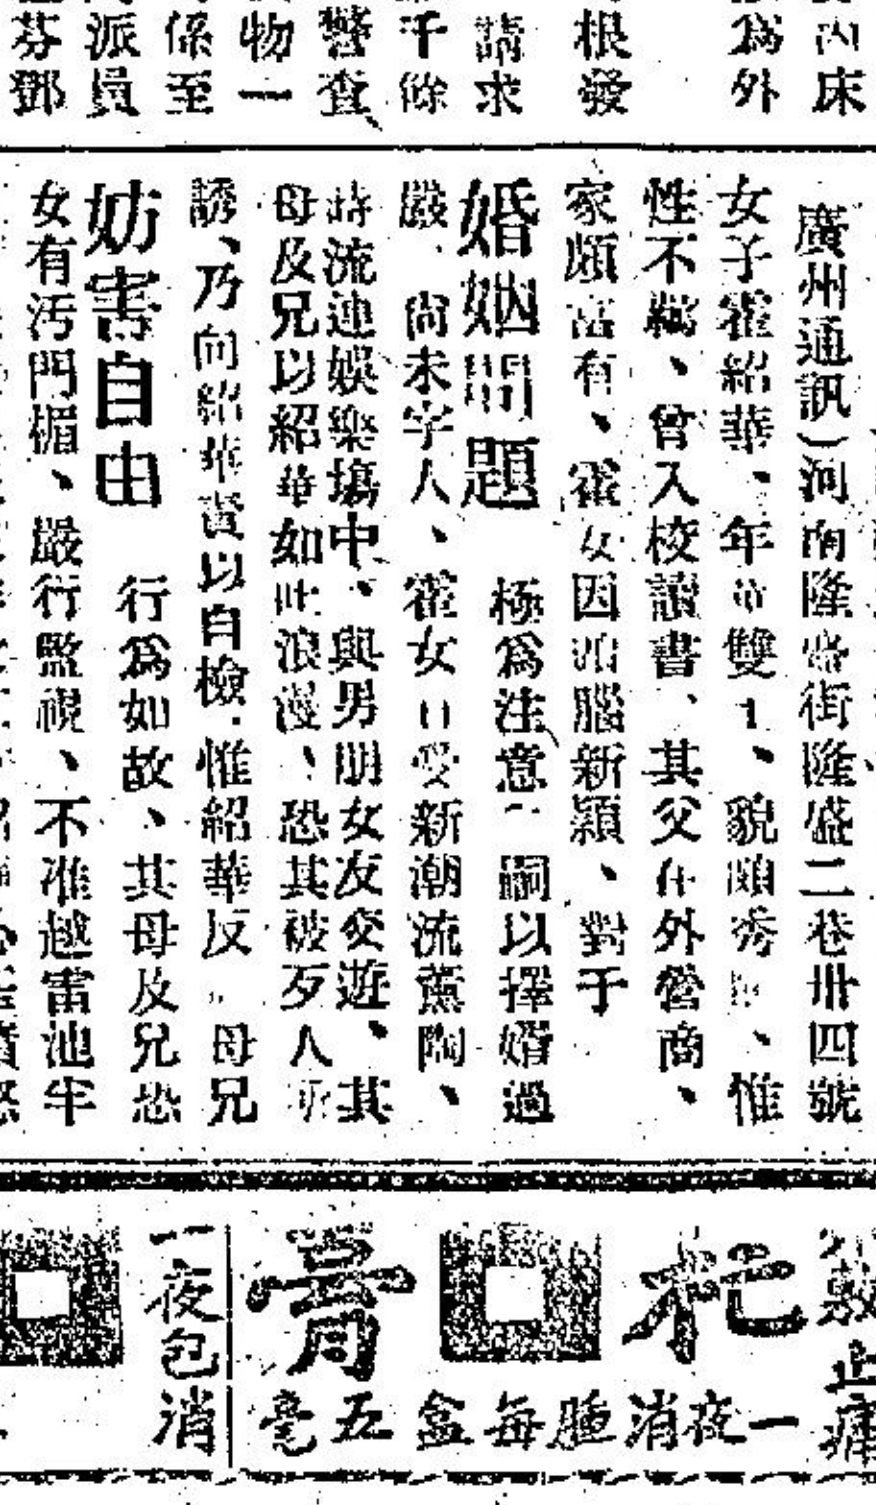 內床
為外
根發
請求
千餘
警查
物一
係至
派員
芬鄧
廣州通訊）河南隆盛街隆盛二巷卅四號
女子霍紹華、年 雙十、貌頗秀 、惟
性不羈、曾入校讀書、其父在外營商、
家頗富有、霍女因頭腦新穎、對于
婚姻問題
極為注意、嗣以擇婿過
嚴、尚未字人、霍女日受新潮流薰陶、
時流連娛樂塲中、與男朋女友交遊、其
母及兄以紹華如此浪漫、恐其被歹人所
誘、乃向紹華責以自檢、惟紹華反 母兄
妨害自由
行為如故、其母及兄恐
女有污門楣、嚴行監視、不准越雷池半
敷止痛
杧膏
一夜消腫每盒五毫
一夜包消